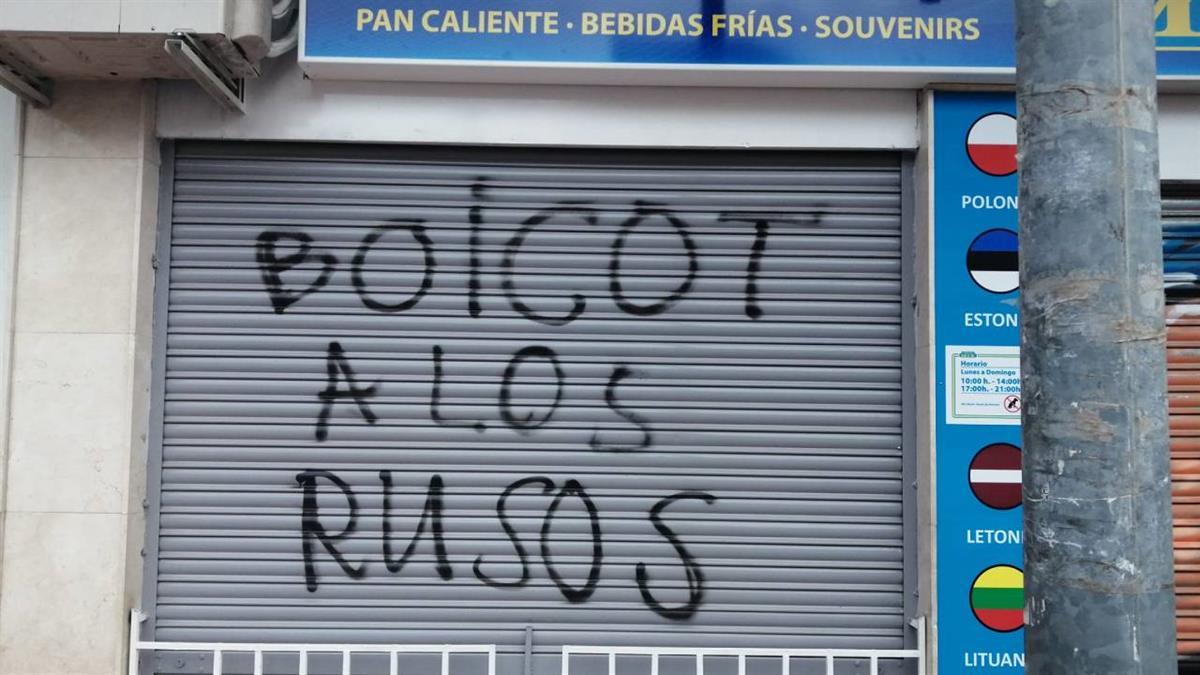 PAN CALIENTE · BEBIDAS FRÍAS · SOUVENIRS
BOICOT
A LOS
RUSOS
POLON
ESTON
Horario
Lunes a Domingo
10:00 h. - 14:00h
17:00h. - 21:00h
LETON
LITUAN